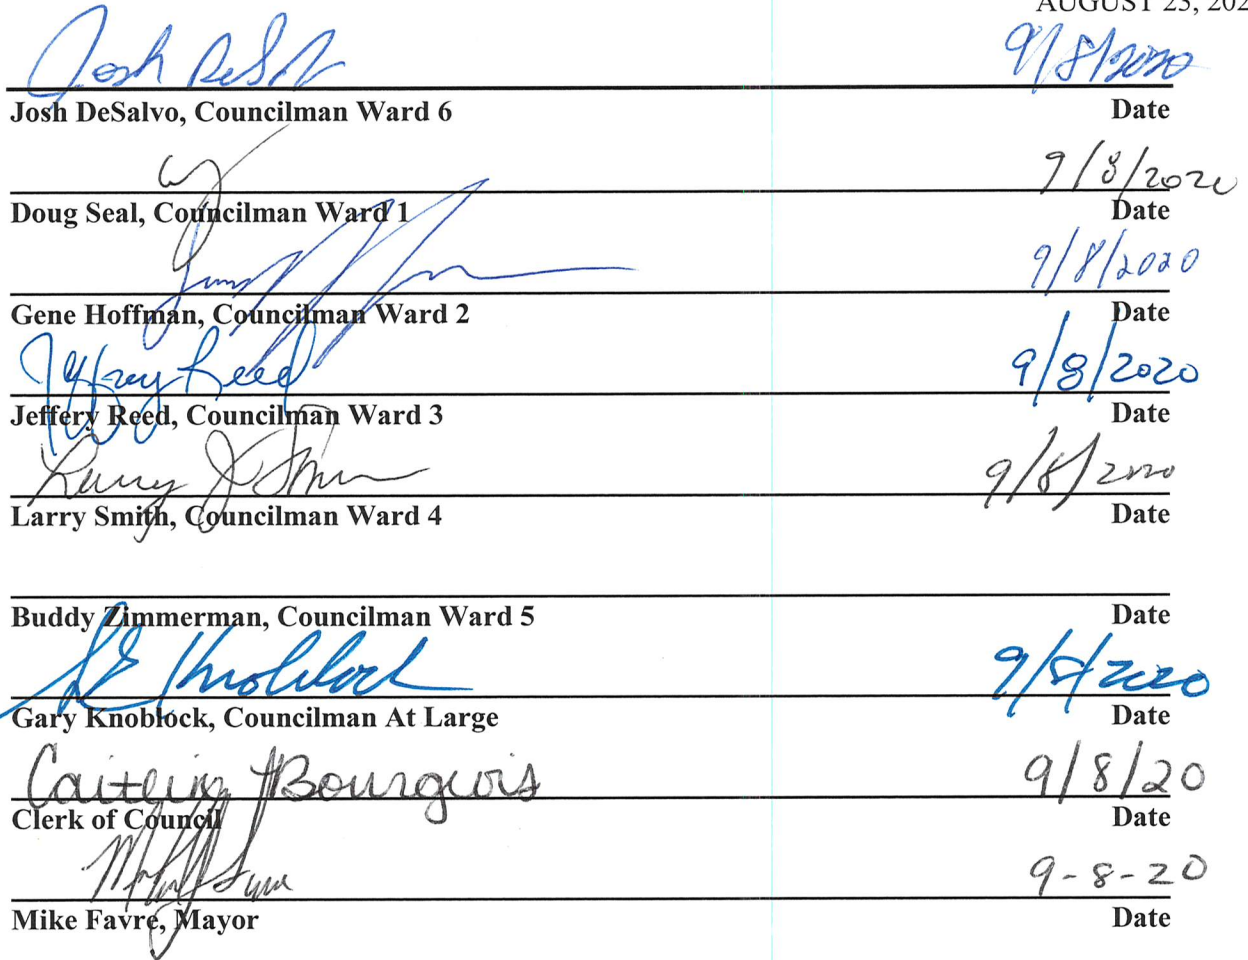 AUGUST 25, 202
Josh DeSalvo 9/8/2020
Josh DeSalvo, Councilman Ward 6 Date
9/8/2020
Doug Seal, Councilman Ward 1 Date
9/8/2020
Gene Hoffman, Councilman Ward 2 Date
Jeffrey Reed 9/8/2020
Jeffery Reed, Councilman Ward 3 Date
Larry J Smith 9/8/2020
Larry Smith, Councilman Ward 4 Date
Buddy Zimmerman, Councilman Ward 5 Date
Knoblock 9/8/2020
Gary Knoblock, Councilman At Large Date
Caitlin Bourgeois 9/8/20
Clerk of Council Date
9-8-20
Mike Favre, Mayor Date